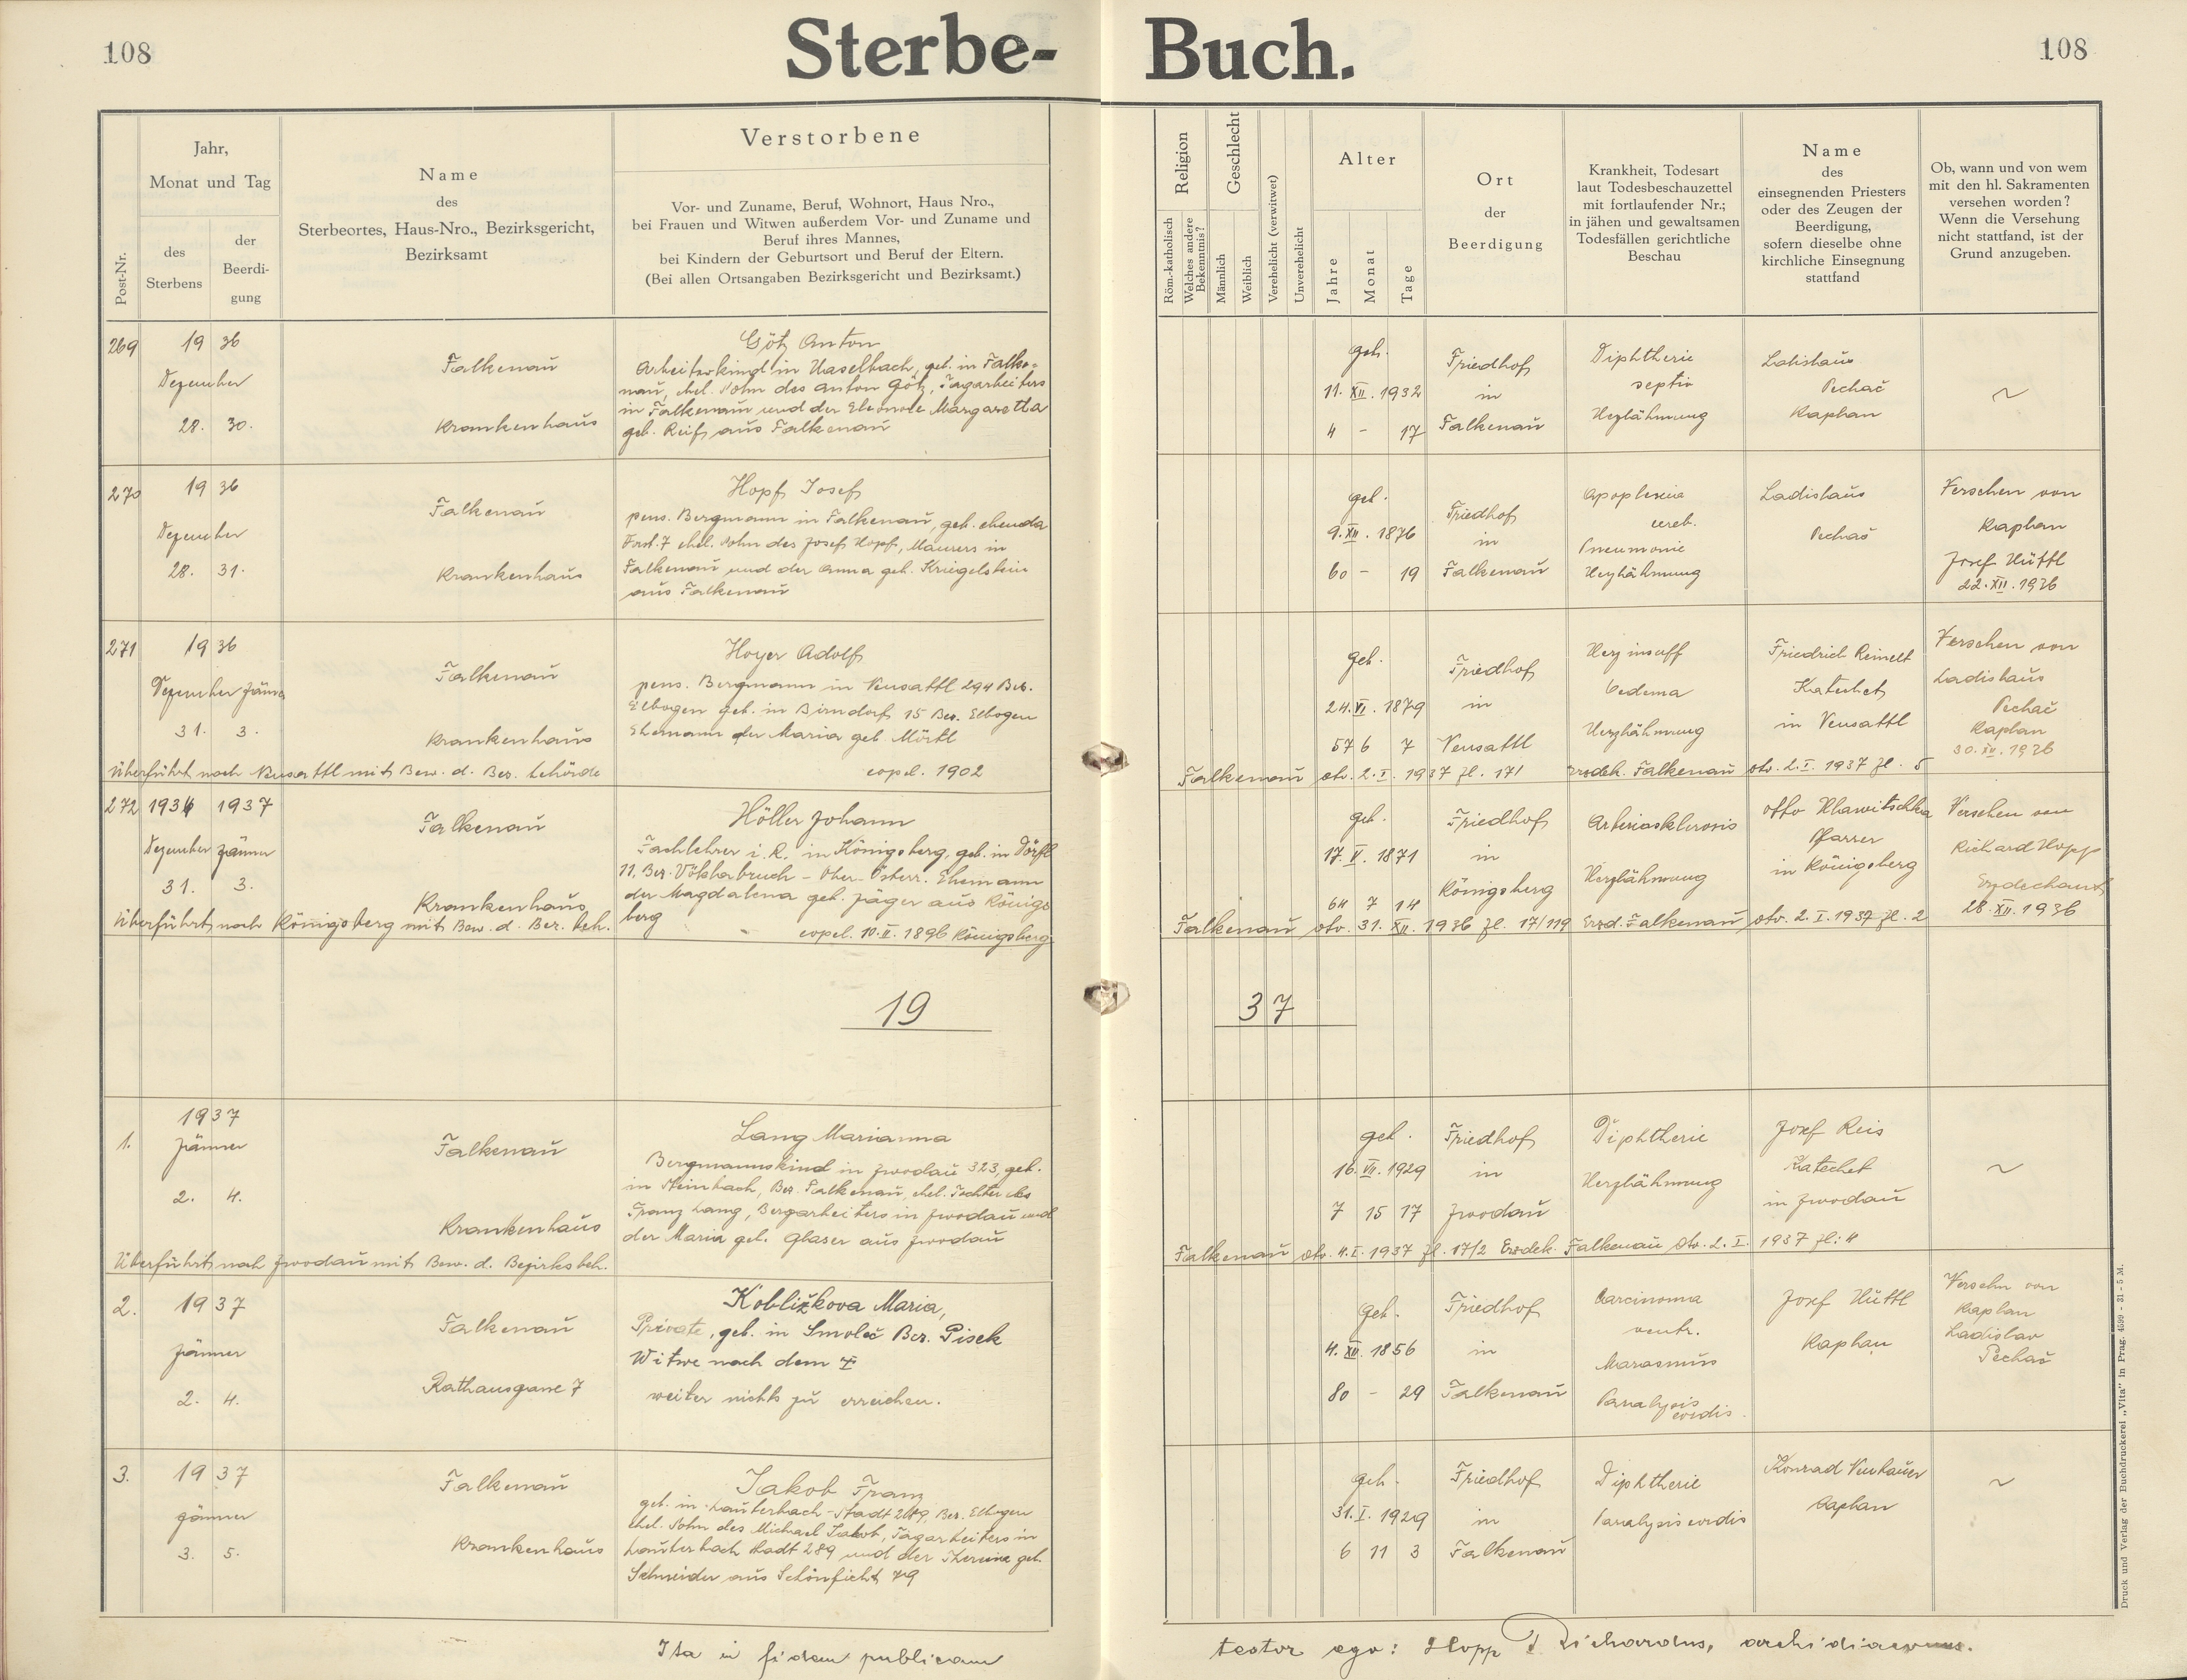 108
Sterbe-Buch.
108
Post-Nr.
Jahr,
Monat und Tag
des
Sterbens
der
Beerdi-
gung
Name
des
Sterbeortes, Haus-Nro., Bezirksgericht,
Bezirksamt
Verstorbene
Vor- und Zuname, Beruf, Wohnort, Haus Nro.,
bei Frauen und Witwen außerdem Vor- und Zuname und
Beruf ihres Mannes,
bei Kindern der Geburtsort und Beruf der Eltern.
(Bei allen Ortsangaben Bezirksgericht und Bezirksamt.)
Religion
Röm.-katholisch
Welches andere
Bekenntnis?
Geschlecht
Männlich
Weiblich
Verehelicht (verwitwet)
Unverehelicht
Alter
Jahre
Monat
Tage
Ort
der
Beerdigung
Krankheit, Todesart
laut Todesbeschauzettel
mit fortlaufender Nr.;
in jähen und gewaltsamen
Todesfällen gerichtliche
Beschau
Name
des
einsegnenden Priesters
oder des Zeugen der
Beerdigung,
sofern dieselbe ohne
kirchliche Einsegnung
stattfand
Ob, wann und von wem
mit den hl. Sakramenten
versehen worden?
Wenn die Versehung
nicht stattfand, ist der
Grund anzugeben.
269
1936
Dezember
28. 30.
Falkenau
Krankenhaus
Götz Anton
Arbeiterkind in Haselbach, geb. in Falke-
nau, ehel. Sohn des Anton Götz, Tagarbeiters
in Falkenau und der Eleonore Margaretha
geb. Reif aus Falkenau
geb.
11. XII. 1932
4 - 17
Friedhof
in
Falkenau
Diphtherie
septio
Herzlähmung
Ladislaus
Pechač
Kaplan
~
270
1936
Dezember
28. 31.
Falkenau
Krankenhaus
Hopf Josef
pens. Bergmann in Falkenau, geb. ebenda
7 ehel. Sohn des Josef Hopf, Maurers in
Falkenau und der Anna geb. Kriegelstein
aus Falkenau
geb.
9. XII. 1876
60 - 19
Friedhof
in
Falkenau
Apoplexia
cereb.
Pneumonie
Herzlähmung
Ladislaus
Pechač
Versehen von
Kaplan
Josef Hüttl
22. XII. 1936
271
1936
Dezember Jänner
31. 3.
Falkenau
Krankenhaus
Überführt nach Neusattl mit Bew. d. Bez. behörde
Hoyer Adolf
pens. Bergmann in Neusattl 294 Bez.
Elbogen geb. in Birndorf 15 Bez. Elbogen
Ehemann der Maria geb Mörtl
copul. 1902
geb.
24. VI. 1879
57 6 7
Friedhof
in
Neusattl
Herzinsuff
Oedema
Herzlähmung
Friedrich Reinelt
Katechet
in Neusattl
Versehen von
Ladislaus
Pechač
Kaplan
30. XII. 1936
Falkenau dto. 2. I. 1937 Zl. 171 Erzdek. Falkenau dto. 2. I. 1937 Zl. 5
272
1936 1937
Dezember Jänner
31. 3.
Falkenau
Krankenhaus
Überführt nach Königsberg mit Bew. d. Bez. beh.
Höller Johann
Fachlehrer i. R. in Königsberg, geb. in Dörfl
11. Bez. Vöklabruch - Ober-Österr. Ehemann
der Magdalena geb. Jäger aus Königs
berg
copul. 10. II. 1896 Königsberg
geb.
17. V. 1871
64 7 14
Friedhof
in
Königsberg
Arteriosklerosis
Herzlähmung
Otto Hlawitschka
Pfarrer
in Königsberg
Versehen von
Richard Hopp
Erzdechant
28. XII. 1936
Falkenau dto. 31. XII. 1936 Zl. 17/119 Erzd. Falkenau dto. 2. I. 1937 Zl. 2
19 37
1.
1937
Jänner
2. 4.
Falkenau
Krankenhaus
Überführt nach Zwodau mit Bew. d. Bezirksbeh.
Lang Marianna
Bergmannskind in Zwodau 323, geb.
in Steinbach, Bez. Falkenau, ehel. Tochter des
Franz Lang, Bergarbeiters in Zwodau und
der Maria geb. Glaser aus Zwodau
geb.
16. VII. 1929
7 15 17
Friedhof
in
Zwodau
Diphtherie
Herzlähmung
Josef Reis
Katechet
in Zwodau
~
Falkenau dto. 4. I. 1937 Zl. 17/2 Erzdek. Falkenau dto. 2. I. 1937 Zl: 4
2.
1937
Jänner
2. 4.
Falkenau
Rathausgasse 7
Kobližkova Maria,
Private, geb. in Smoleč Bez. Pisek
Witwe nach dem
weiter nichts zu erreichen.
geb.
4. XII. 1856
80 - 29
Friedhof
in
Falkenau
Carcinoma
ventr.
Marasmus
Paralysis
cordis.
Josef Hüttl
Kaplan
Versehn von
Kaplan
Ladislav
Pechač
3.
1937
Jänner
3. 5.
Falkenau
Krankenhaus
Jakob Franz
geb. in Lauterbach-Stadt 289, Bez. Elbogen
ehel. Sohn des Michael Jakob, Tagarbeiters in
Lauterbach Stadt 289 und der Theresia geb.
Schneider aus Schönficht 79
geb.
31. I. 1929
6 11 3
Friedhof
in
Falkenau
Diphtherie
Paralysis cordis
Konrad Neubauer
Kaplan
~
Ita in fidem publicam
testor ego: Hopp Richardus, archidiaconus.
Druck und Verlag der Buchdruckerei „Vita" in Prag. 4599 - 31 - 5 M.